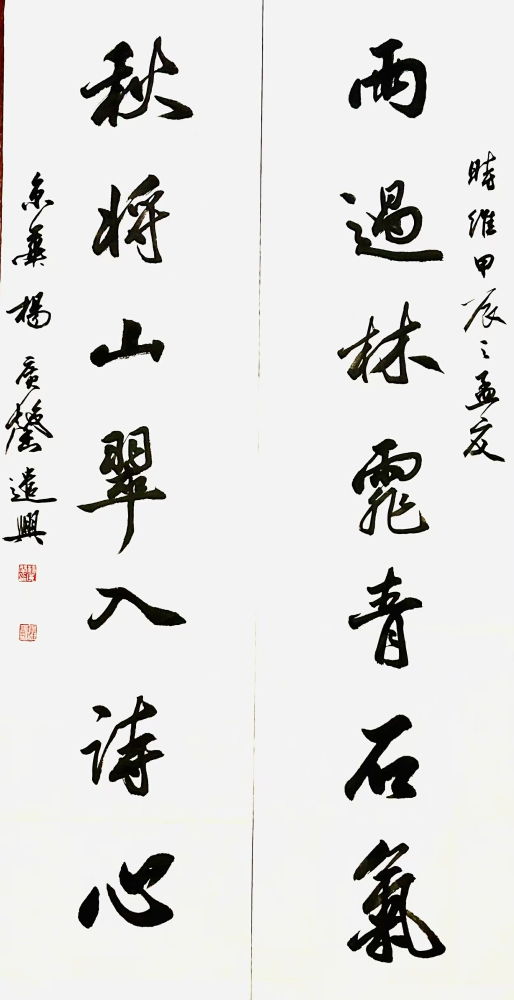 時維甲辰之孟夏
雨過林霏青石氣
秋將山翠入詩心
京兆楊廣馨遣興